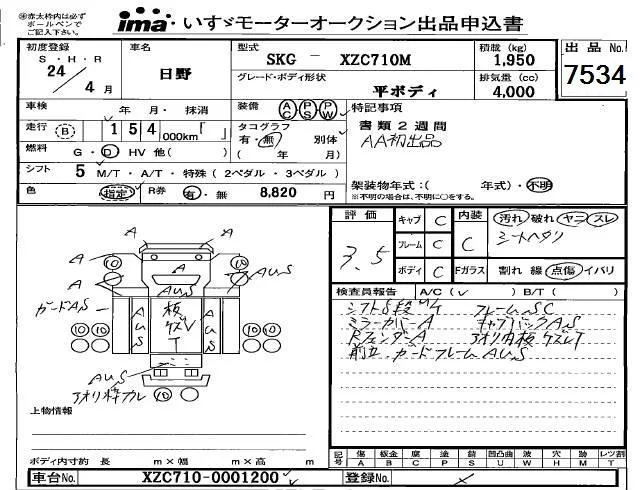 ㊟赤太枠内は必ず
ボールペンで
ご記入ください。
ima いすゞモーターオークション出品申込書
初度登録
S・H・R
24
4 月
車名
日野
型式
SKG － XZC710M
積載 (kg)
1,950
出品 No.
7534
グレード・ボディ形状
平ボディ
排気量 (cc)
4,000
車検
年 月・ 抹消
装備 AC PS PW
特記事項
書類2週間
AA初出品
走行 (B) 1 5 4 000km「 」
タコグラフ
有・無 別体
( 年 月)
燃料 G・D HV 他( )
シフト 5 M/T・A/T・特殊 (2ペダル・3ペダル)
架装物年式:( 年式)・不明
※不明の場合は、不明に○をする。
色 (指定) R券 有・無 8,820 円
評価
3.5
キャブ C
フレーム C
ボディ C
内装 C
Fガラス
汚れ 破れ ヤニ スレ
シートヘタリ
割れ 線 点傷 イバリ
検査員報告 A/C( ✓ ) B/T( )
シフト5段 M/T フレームSC
ミラーカバーA キャブバックAS
RフェンダーA アオリ内板ケズレT
前立、ガードフレームAUS
A A
A A
A AUS
AUS
ガードAS
AUS 板ケズV T AUS
10 10 10 10 10
AUS
アオリ枠カル 10
上物情報
ボディ内寸約 長 m×幅 m×高 m
記号 傷 A 板金 B 腐 C 塗 P 錆 S 凹凸曲 U 波 W 穴 H 跡 M レツ割 T
車台No. XZC710-0001200
登録No.